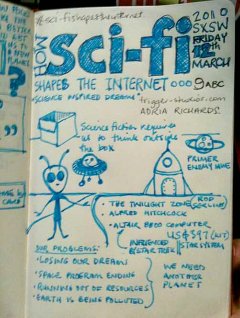 #sci-fishapestheinternet
2010
SXSW
FRIDAY
12
MARCH
HOW
SCi-fi
SHAPES THE INTERNET
9ABC
"SCIENCE INSPIRED DREAMS"
trigger-studios.com
ADRIA RICHARDS
Science fiction requires
us to think outside
the box
PRIMER
ENEMY HINE
• THE TWILIGHT ZONE
ROD
SERLING
• ALFRED HITCHCOCK
• ALTAIR 8800 COMPUTER
US $ 397 (KIT)
INFLUENCED
BY STAR TREK
STAR SYSTEM
OUR PROBLEMS:
• LOSING OUR DREAM
• SPACE PROGRAM ENDING
• RUNNING OUT OF RESOURCES
• EARTH IS BEING POLLUTED
WE NEED
ANOTHER
PLANET